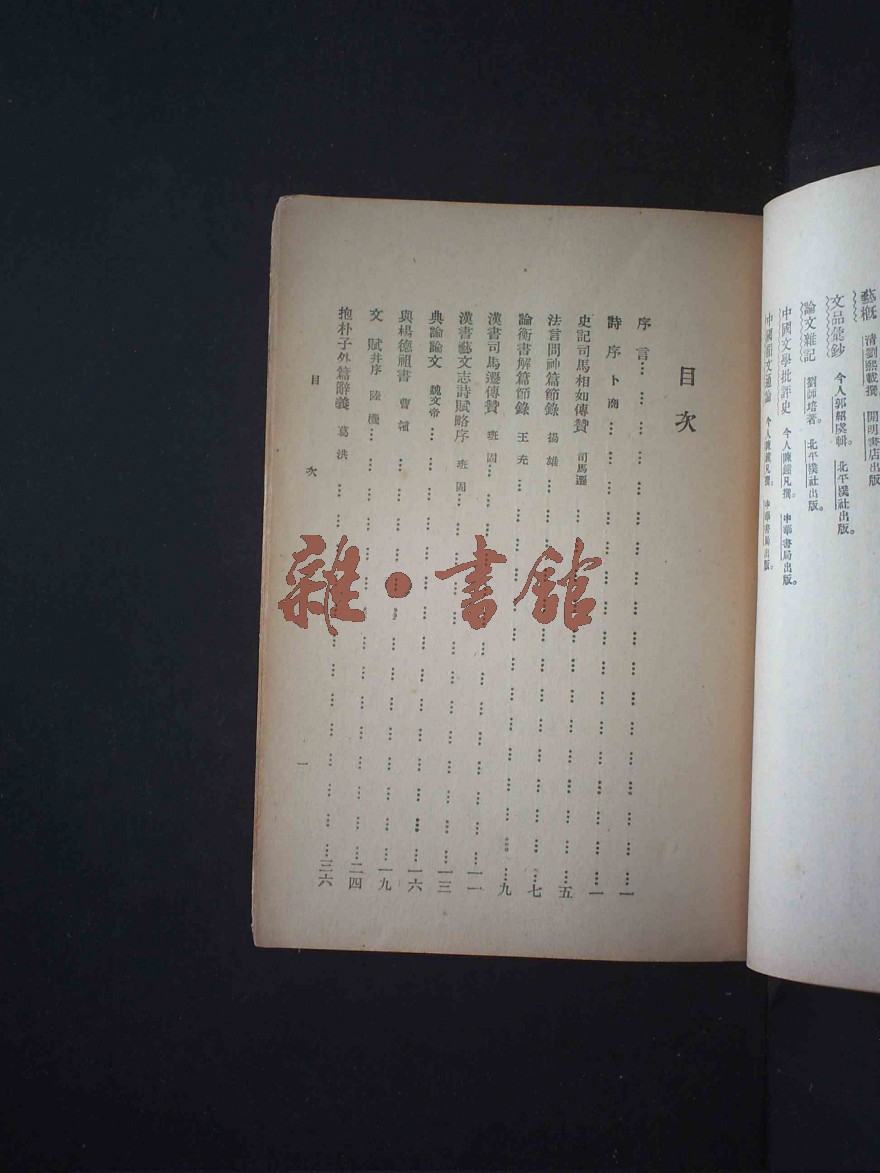 藝概 清劉熙載撰 開明書店出版
文品彙鈔 今人郭紹虞輯。北平樸社出版。
論文雜記 劉師培著。北平樸社出版。
中國文學批評史 今人陳鐘凡撰。中華書局出版。
中國韻文通論 今人陳鐘凡撰。中華書局出版。
目次
序言……一
詩序 卜商……一
史記司馬相如傳贊 司馬遷……五
法言問神篇節錄 揚雄……七
論衡書解篇節錄 王充……九
漢書司馬遷傳贊 班固……一一
漢書藝文志詩賦略序 班固……一三
典論論文 魏文帝……一六
與楊德祖書 曹植……一九
文賦并序 陸機……二四
抱朴子外篇辭義 葛洪……三六
目次 一
雜·書館